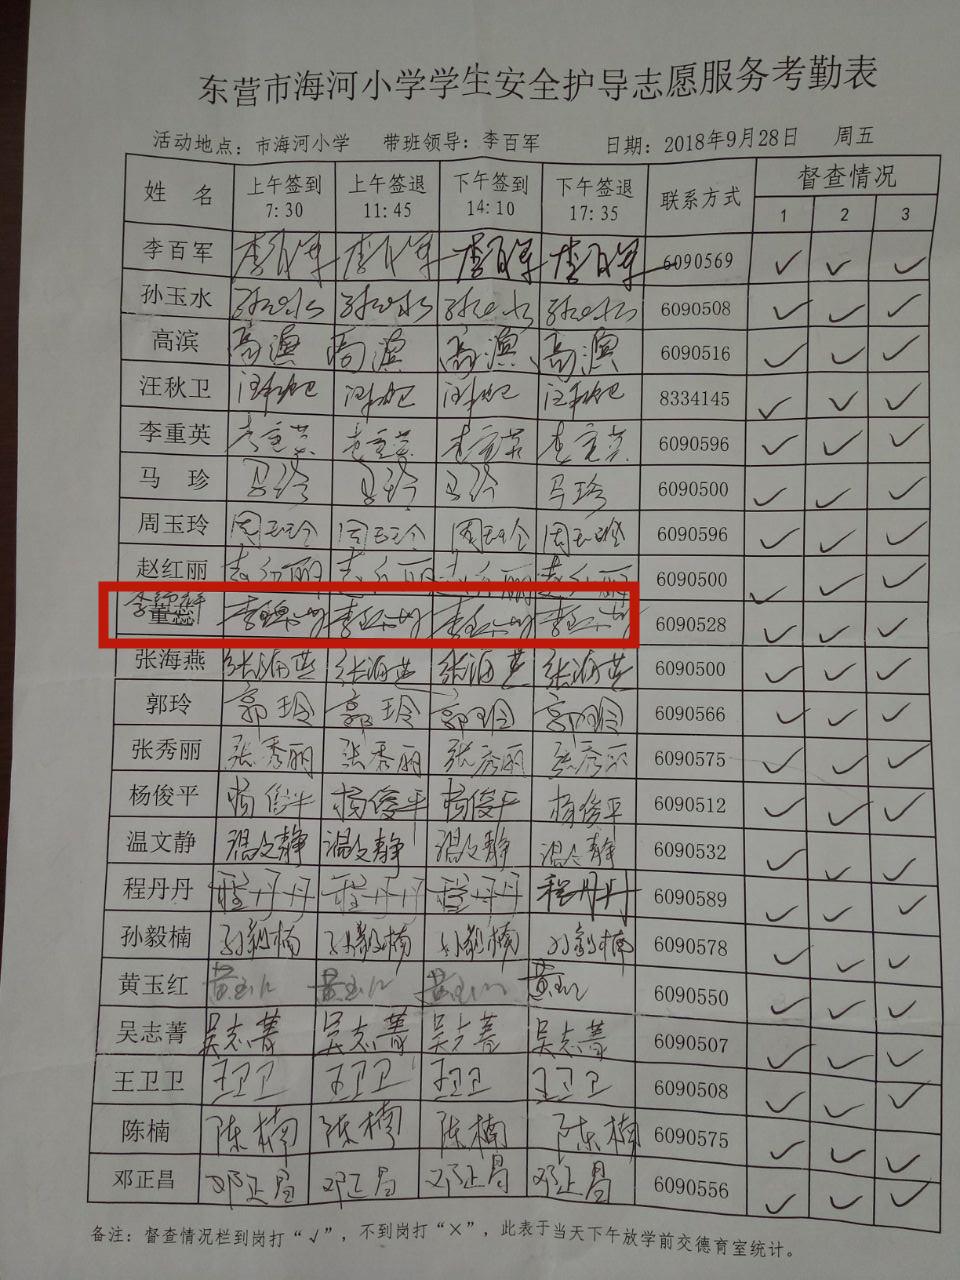 东营市海河小学学生安全护导志愿服务考勤表
活动地点：市海河小学 带班领导：李百军 日期：2018年9月28日 周五
姓 名 上午签到 7:30 上午签退 11:45 下午签到 14:10 下午签退 17:35 联系方式 督查情况 1 2 3
李百军 李百军 李百军 李百军 李百军 6090569 ✓ ✓ ✓
孙玉水 孙玉水 孙玉水 孙玉水 孙玉水 6090508 ✓ ✓ ✓
高滨 高滨 高滨 高滨 高滨 6090516 ✓ ✓ ✓
汪秋卫 汪秋卫 汪秋卫 汪秋卫 汪秋卫 8334145 ✓ ✓ ✓
李重英 李重英 李重英 李重英 李重英 6090596 ✓ ✓ ✓
马 珍 马珍 马珍 马珍 马珍 6090500 ✓ ✓ ✓
周玉玲 周玉玲 周玉玲 周玉玲 周玉玲 6090596 ✓ ✓ ✓
赵红丽 赵红丽 赵红丽 赵红丽 赵红丽 6090500 ✓ ✓ ✓
董蕊 6090528 ✓ ✓ ✓
张海燕 张海燕 张海燕 张海燕 张海燕 6090500 ✓ ✓ ✓
郭玲 郭玲 郭玲 郭玲 郭玲 6090566 ✓ ✓ ✓
张秀丽 张秀丽 张秀丽 张秀丽 张秀丽 6090575 ✓ ✓ ✓
杨俊平 杨俊平 杨俊平 杨俊平 杨俊平 6090512 ✓ ✓ ✓
温文静 温文静 温文静 温文静 温文静 6090532 ✓ ✓ ✓
程丹丹 程丹丹 程丹丹 程丹丹 程丹丹 6090589 ✓ ✓ ✓
孙毅楠 孙毅楠 孙毅楠 孙毅楠 孙毅楠 6090578 ✓ ✓ ✓
黄玉红 黄玉红 黄玉红 黄玉红 黄玉红 6090550 ✓ ✓ ✓
吴志菁 吴志菁 吴志菁 吴志菁 吴志菁 6090507 ✓ ✓ ✓
王卫卫 王卫卫 王卫卫 王卫卫 王卫卫 6090508 ✓ ✓ ✓
陈楠 陈楠 陈楠 陈楠 陈楠 6090575 ✓ ✓ ✓
邓正昌 邓正昌 邓正昌 邓正昌 邓正昌 6090556 ✓ ✓ ✓
备注：督查情况栏到岗打“√”，不到岗打“×”，此表于当天下午放学前交德育室统计。